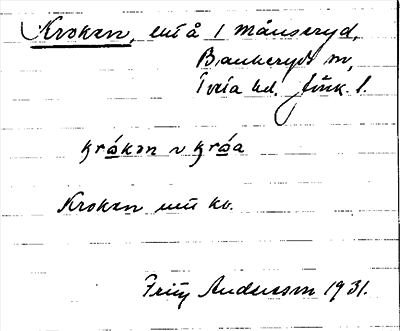 Kroken, litå i Månseryd,
Bankeryds sn,
Tveta hd. Jönk. l.
kråkən ν kråa
Kroken kv.
Fritz Andersson 1931.